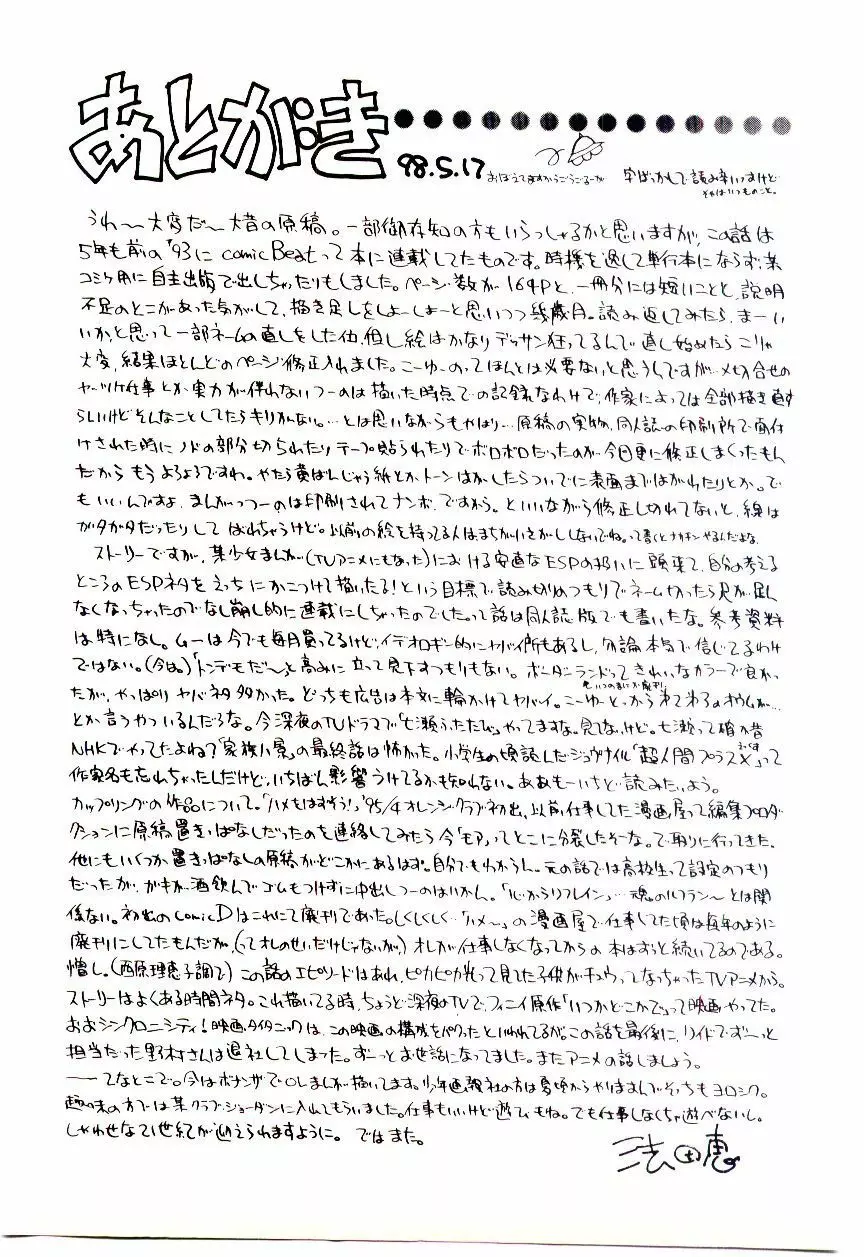 あとがき
98.5.17
おぼえてますかうごうごるーが
字ばっかしで読み辛いっすけど
それはいつものこと。
うれ〜大変だ〜大昔の原稿。一部御存知の方もいらっしゃるかと思いますが、この話は
5年も前の'93にcomic Beatって本に連載してたものです。時機を逸して単行本にならず、某
コミケ用に自主出版で出しちゃったりもしました。ページ数が164Pと、一冊分には短いことと、説明
不足のとこがあった気がして、描き足しをしよーしよーと思いつつ幾歳月。読み返してみたら、まーい
いかと思って一部ネームの直しをした他、但し絵はかなりデッサン狂ってるんで直し始めたらこりゃ
大変、結果ほとんどのページ修正入れました。こーゆーのってほんとは必要ないと思うんですが…〆切合せの
やっつけ仕事とか、実力が伴れないつーのは描いた時点での記録なわけで、作家によっては全部描き直す
らしいけどそんなことしてたらキリがない。…とは思いながらもやはり…原稿の実物、同人誌の印刷所で面付
けされた時にノドの部分切られたりテープ貼られたりでボロボロだったのが今回更に修正しまくったもん
だからもうよろよろですわ。やたら黄ばんじゃう紙とか、トーンはがしたらついでに表面まではがれたりとか。で
もいいんですよ、まんがっつーのは印刷されてナンボ、ですから。といいながら修正し切れてないと、線は
ガタガタだったりしてばれちゃうけど。以前の絵を持ってる人はまちがいさがししないでね。って書くとナカナカやるんだよな。
ストーリーですが、某少女まんが(TVアニメにもなった)における安直なESPの扱いに頭来て、自分の考える
ところのESPネタをえっちにかこつけて描いたる!という目標で読み切りのつもりでネーム切ったら尺が足ん
なくなっちゃったのでなし崩し的に連載にしちゃったのでした。って話は同人誌版でも書いたな。参考資料
は特になし。ムーは今でも毎月買ってるけど、イデオロギー的にヤバイ所もあるし、勿論本気で信じてるわけ
ではない。(今は。)「トンデモだ〜」と高みに立って見下すつもりもない。ボーダーランドってきれいなカラーで良かっ
たが、やっぱりヤバネタ多かった。どっちも広告は本文に輪かけてヤバイ。こーゆーとっから第2第3のオウムが…
とか言うやついるんだろな。今深夜のTVドラマで「七瀬ふたたび」やってますな。見てないけど。七瀬って確か昔
NHKでやってたよね?「家族八景」の最終話は怖かった。小学生の頃読んだジュヴナイル「超人間プラスX」って
作家名も忘れちゃったんだけど、いちばん影響うけてるかも知れない。ああもーいちど読みたいよう。
カップリングの作品について。「ハメをはずそう!」'95/4オレンジクラブ初出、以前仕事してた漫画屋って編集プロダ
クションに原稿置きっぱなしだったのを連絡してみたら今「モア」ってとこに分裂したそーな。で取りに行ってきた。
他にもいくつか置きっぱなしの原稿がどこかにあるはず。自分でもわからん。元の話では高校生って設定のつもり
だったが、ガキが酒飲んでゴムもつけずに中出しつーのはいかん。「心からリフレイン」…魂のルフラン〜とは関
係ない。初出のComic Dはこれにて廃刊であった。しくしくしく…「ハメ〜」の漫画屋で仕事してた頃は毎年のように
廃刊にしてたもんだが、(ってオレのせいだけじゃないが)オレが仕事しなくなってからの本はずっと続いてるのである。
憎し。(西原理恵子調で)この話のエピソードはあれ、ピカピカ光って見てた子供がキュウってなっちゃったTVアニメから。
ストーリーはよくある時間ネタ。これ描いてる時、ちょうど深夜のTVで、フィニイ原作「いつかどこかで」って映画やってた。
おおシンクロニシティ!映画タイタニックは、この映画の構成をパクッたといわれてるが。この話を最後に、リイドでず〜っと
担当だった野村さんは退社してしまった。ずーっとお世話になってました。またアニメの話しましょう。
――てなとこで。今はボナンザでOLまんが描いてます。少年画報社の方は夏頃からやりますんでそっちもヨロシク。
趣味の方では某クラブ・ジョーダンに入れてもらいました。仕事もいいけど遊びもね。でも仕事しなくちゃ遊べないし。
しあわせな21世紀が迎えられますように。ではまた。
法田恵